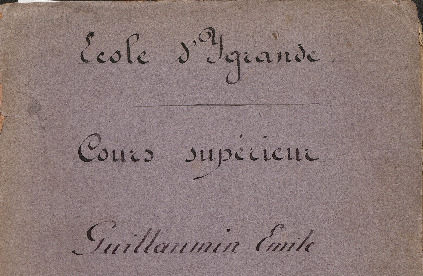 École d'Ygrande
Cours supérieur
Guillaumin Émile